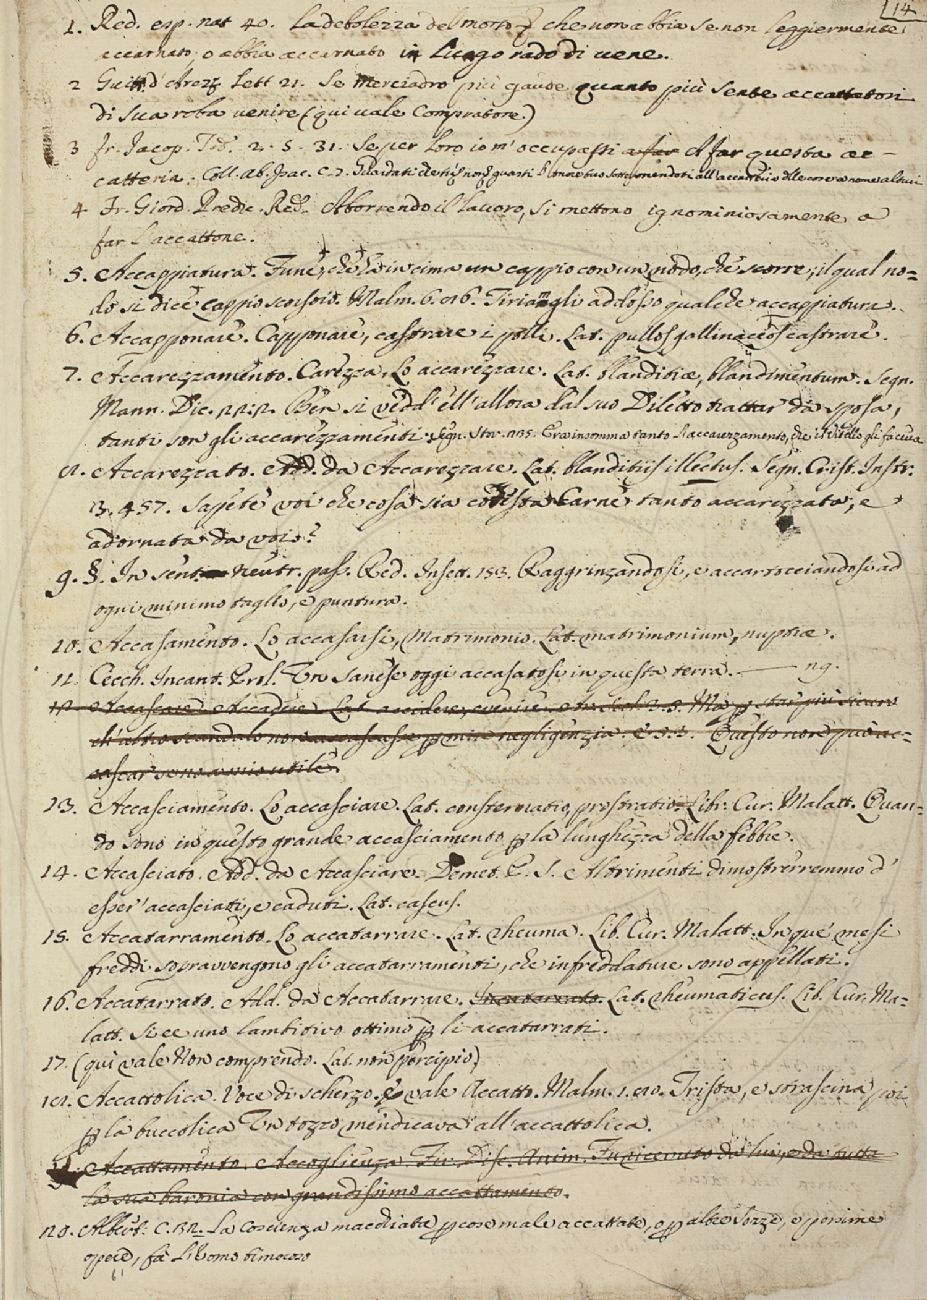 14
1. Red. esp. nat. 40. La debolezza del morto, che non abbia se non leggiermente
accarnato, o abbia accarnato in Luogo rado di vene.
2 Guitt. d'Arezz. Lett. 21. Se Merciadro più gaude quanto più sente accattatori
di sua roba venire (qui vale Compratore.)
3 fr. Jacop. Tod. 2. 5. 31. Se per loro io m'occupassi a far A far questa ac-
catteria. Coll. Ab. Isac. c.
4 Fr. Giord. Predic. Red. Aborrendo il lavoro, si mettono ignominiosamente a
far l'accattone.
5. Accappiatura. Fune, che ha in cima un cappio con un nodo, che scorre, il qual no=
do si dice cappio scorsoio. Malm. 6. 86. Tirian gli addosso qualche accappiatura.
6. Accapponare. Capponare, castrare i polli. Lat. pullos gallinaceos castrare.
7. Accarezzamento. Carezza. Lo accarezzare. Lat. blanditiæ, blandimentum. Segn.
Mann. Dic. 22.2. Ben si vedd' ell' allora dal suo Diletto trattar da sposa,
tanti son gli accarezzamenti. Segn. Stor. Era insomma tanto l'accarezzamento, che il Vitello gli faceva
8. Accarezzato. Add. da Accarezzare. Lat. blanditiis illectus. Segn. Crist. Instr.
3. 457. Sapete voi che cosa sia cotesta Carne tanto accarezzata, e
adornata da voi?
9. §. In sent. neutr. pass. Red. Insett. 153. Raggrinzandosi, e accartocciandosi ad
ogni minimo taglio, e puntura.
10. Accasamento. Lo accasarsi, Matrimonio. Lat. matrimonium, nuptiæ.
11. Cecch. Incant. Prol. Un Sanese oggi accasatosi in questa terra. ng.
12. Accascare. Accadere. Lat. accidere, evenire. 2. 5. Ma p star più sicuro
ch'altro scandalo non accascasse p mia negligenzia. E 3.3. Questo non può ac=
cascar se non a mio utile.
13. Accasciamento. Lo accasciare. Lat. consternatio, prostratio. Libr. Cur. Malatt. Quan-
do sono in questo grande accasciamento p la lunghezza della febbre.
14. Accasciato. Add. da Accasciare. Demet. P. S. Altrimenti dimostrerremmo d'
esser' accasciati, e caduti. Lat. casus.
15. Accatarramento. Lo accatarrare. Lat. rheuma. Lib. Cur. Malatt. In que' mesi
freddi sopravvengono gli accatarramenti, che infreddature sono appellati.
16. Accatarrato. Add. da Accatarrare. Incatarrato. Lat. rheumaticus. Lib. Cur. Ma=
latt. Si ee uno lambitivo ottimo p li accatarrati.
17. (qui vale Non comprendo. Lat. non percipio)
18. Accattolica. Voce di scherzo, e vale Accatto. Malm. 1. 80. Trista, e strascina poi
p la buccolica Un tozzo mendicava all'accattolica.
Accattamento. Accoglienza. Fir. Disc. Anim. Fu ricevuto da lui, e da tutta
la sua baronia con grandissimo accattamento.
20. Albert. C. 32. La Coscienza macchiata p cose male accattate, o p altre sozze, e pessime
opere, fa l'uomo timoroso